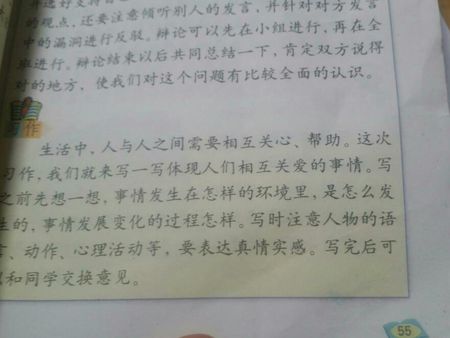 的观点，还要注意倾听别人的发言，并针对对方发言
中的漏洞进行反驳。辩论可以先在小组进行，再在全
班进行。辩论结束以后共同总结一下，肯定双方说得
对的地方，使我们对这个问题有比较全面的认识。
习作
生活中，人与人之间需要相互关心、帮助。这次
习作，我们就来写一写体现人们相互关爱的事情。写
之前先想一想，事情发生在怎样的环境里，是怎么发
生的，事情发展变化的过程怎样。写时注意人物的语
言、动作、心理活动等，要表达真情实感。写完后可
以和同学交换意见。
55